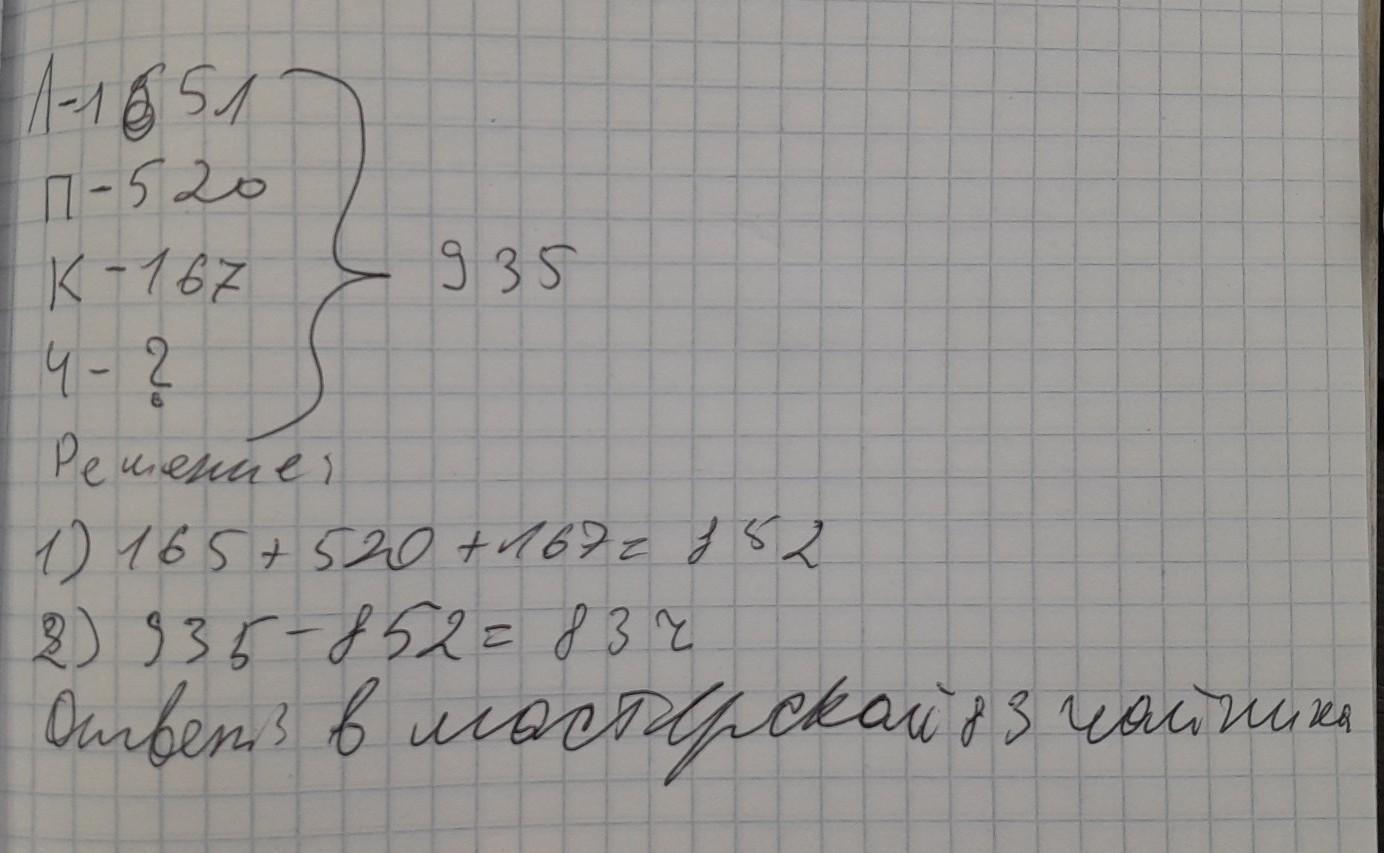 Л-1651
П-520
К-167
Ч-?
935
Решение:
1) 165+520+167=852
2) 935-852=83 ч
Ответ: в мастурской 83 чайника